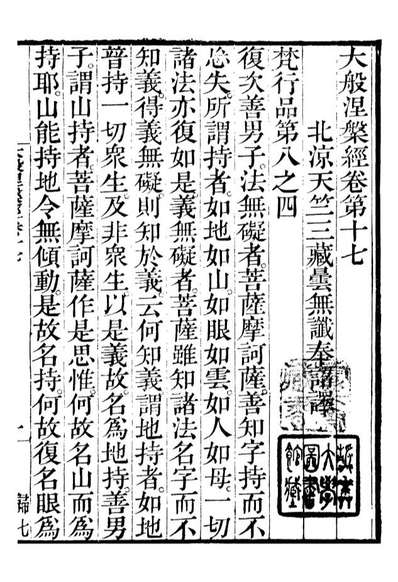 大般涅槃經卷第十七
北涼天竺三藏曇無讖奉詔譯
梵行品第八之四
復次善男子。法無礙者菩薩摩訶薩善知字持而不
忘失。所謂持者。如地如山。如眼如雲。如人如母。一切
諸法亦復如是。義無礙者。菩薩雖知諸法名字而不
知義。得義無礙。則知於義。云何知義。謂地持者。如地
普持一切衆生。及非衆生。以是義故。名爲地持。善男
子。謂山持者。菩薩摩訶薩作是思惟。何故名山而爲
持耶。山能持地令無傾動。是故名持。何故復名眼爲
歸七